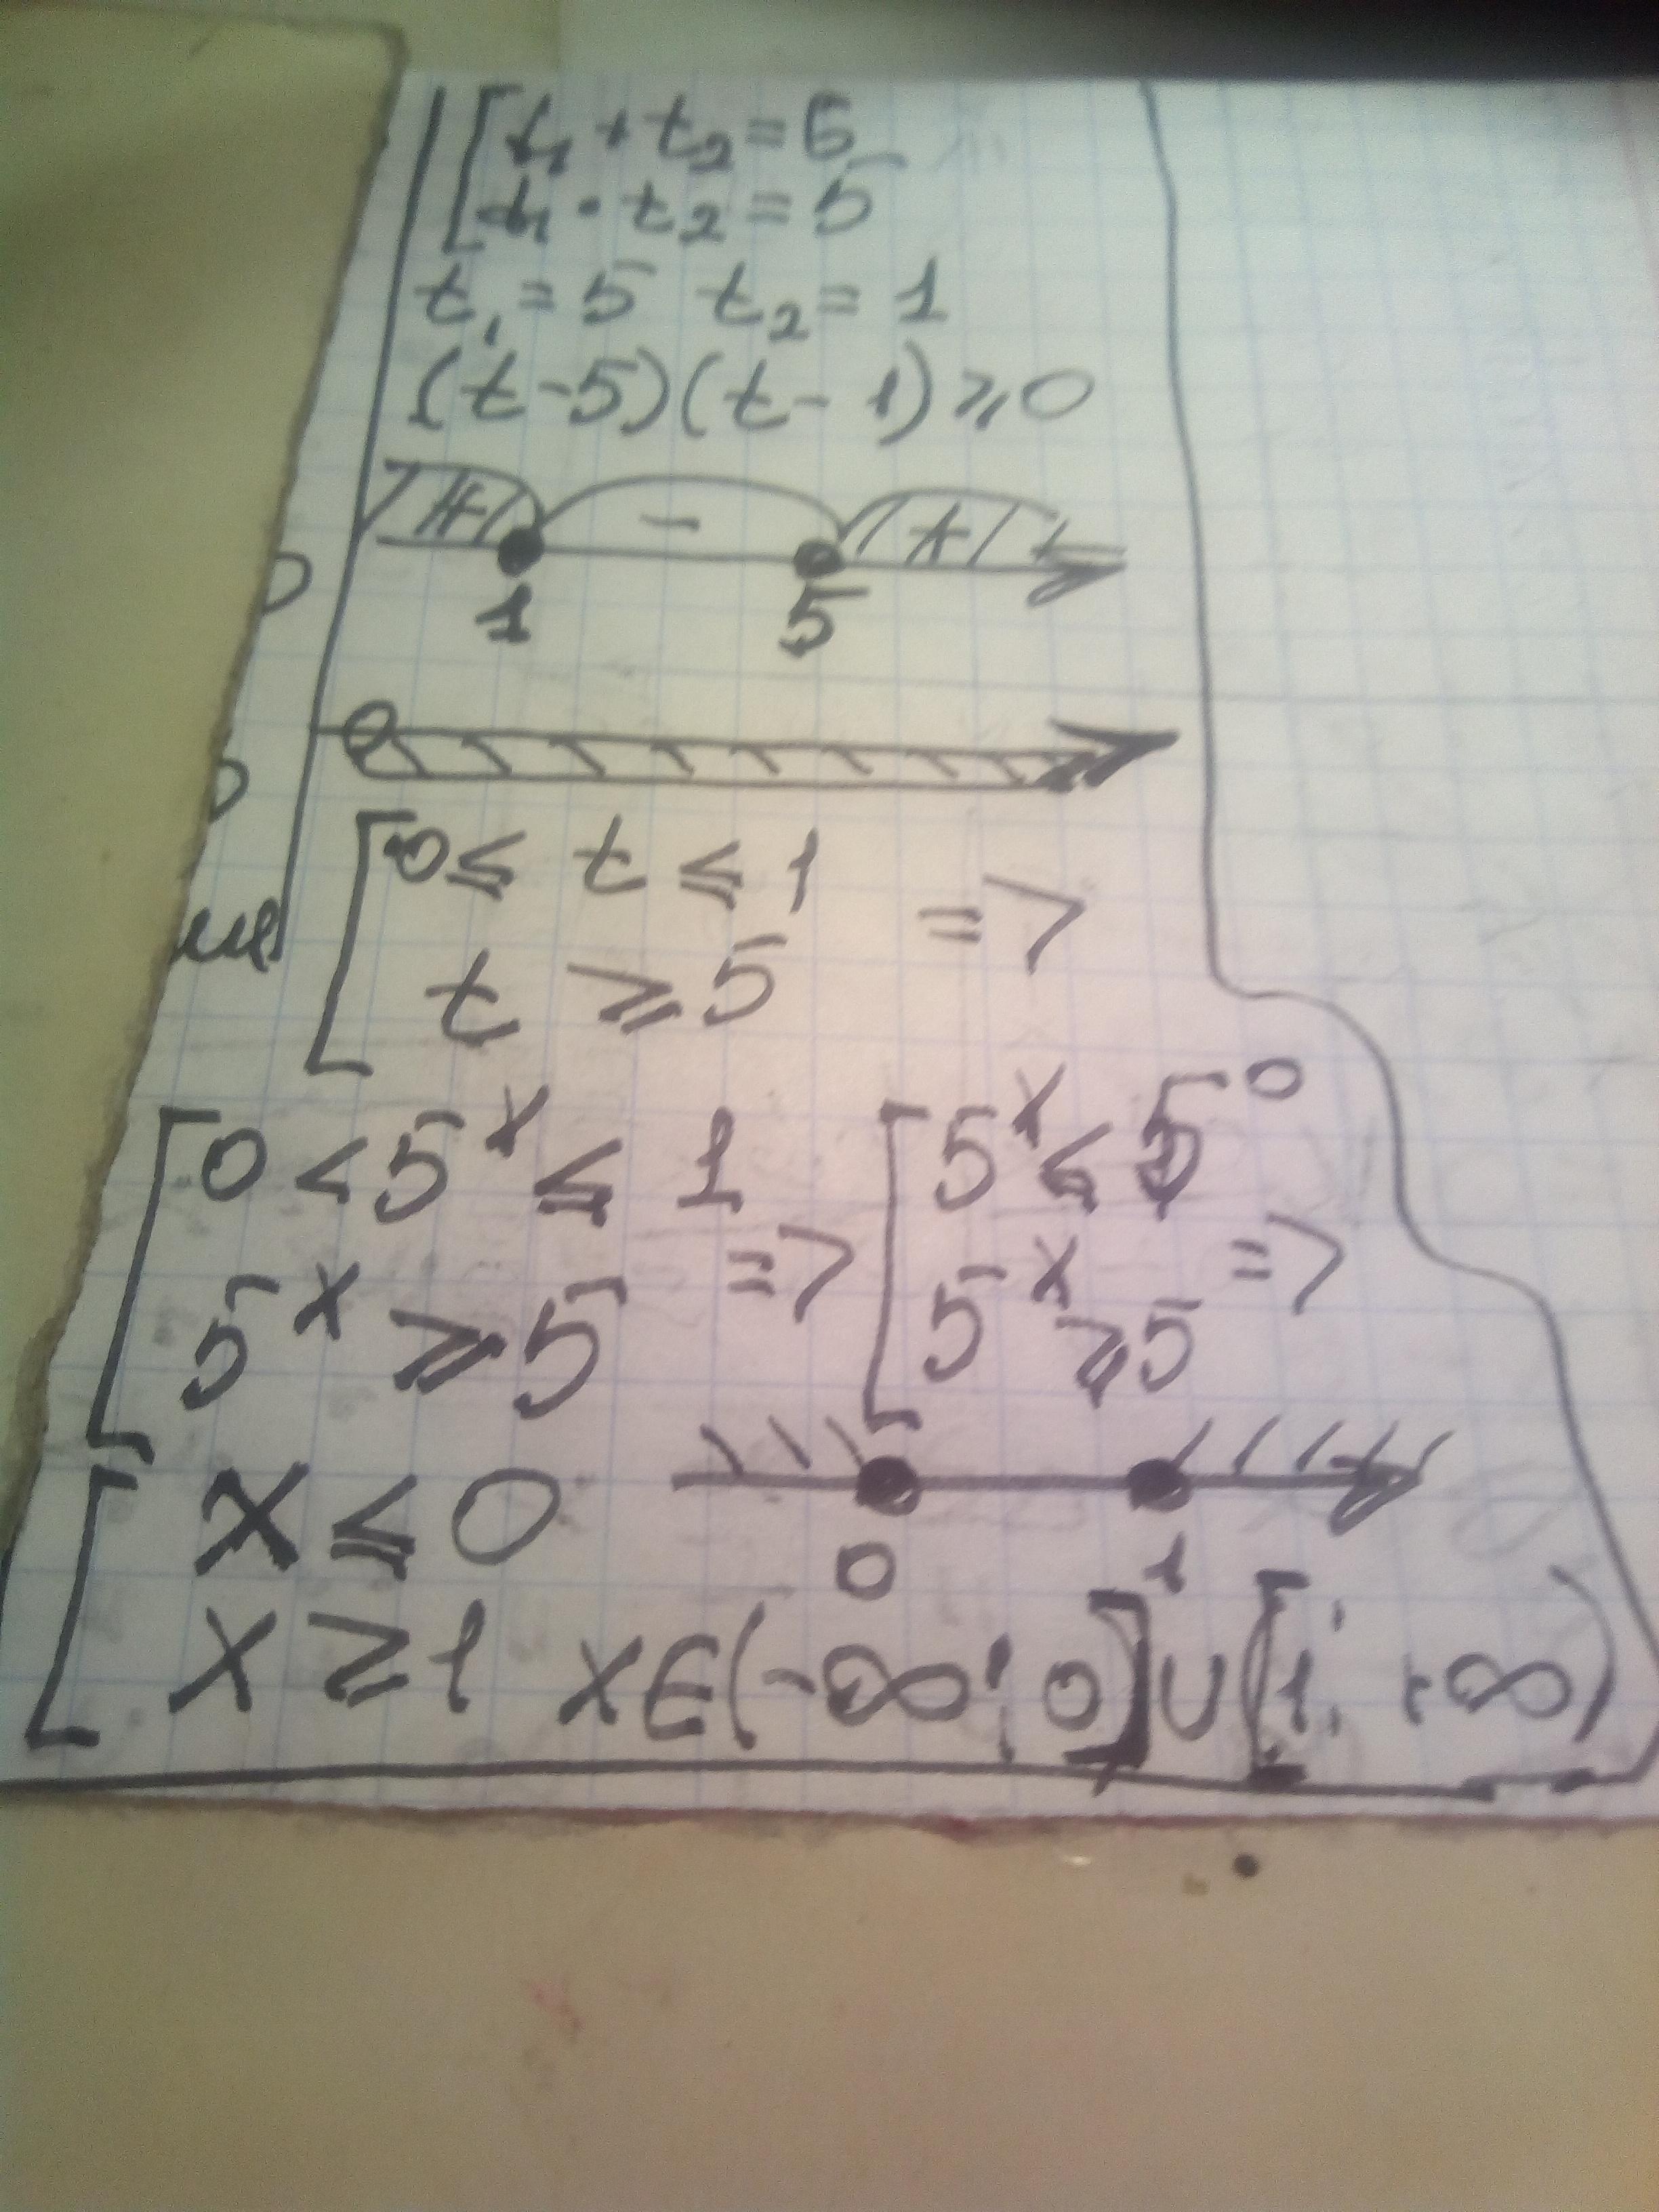 t₁ + t₂ = 6
t₁ · t₂ = 5
t₁ = 5 t₂ = 1
(t - 5)(t - 1) ⩾ 0
+ - +
1 5
0 ≤ t ≤ 1 =>
t ⩾ 5
0 < 5ˣ ≤ 1 => 5ˣ ≤ 5⁰ =>
5ˣ ⩾ 5 5ˣ ⩾ 5
x ≤ 0
0 1
x ≥ 1 x∈(-∞; 0]∪[1; +∞)